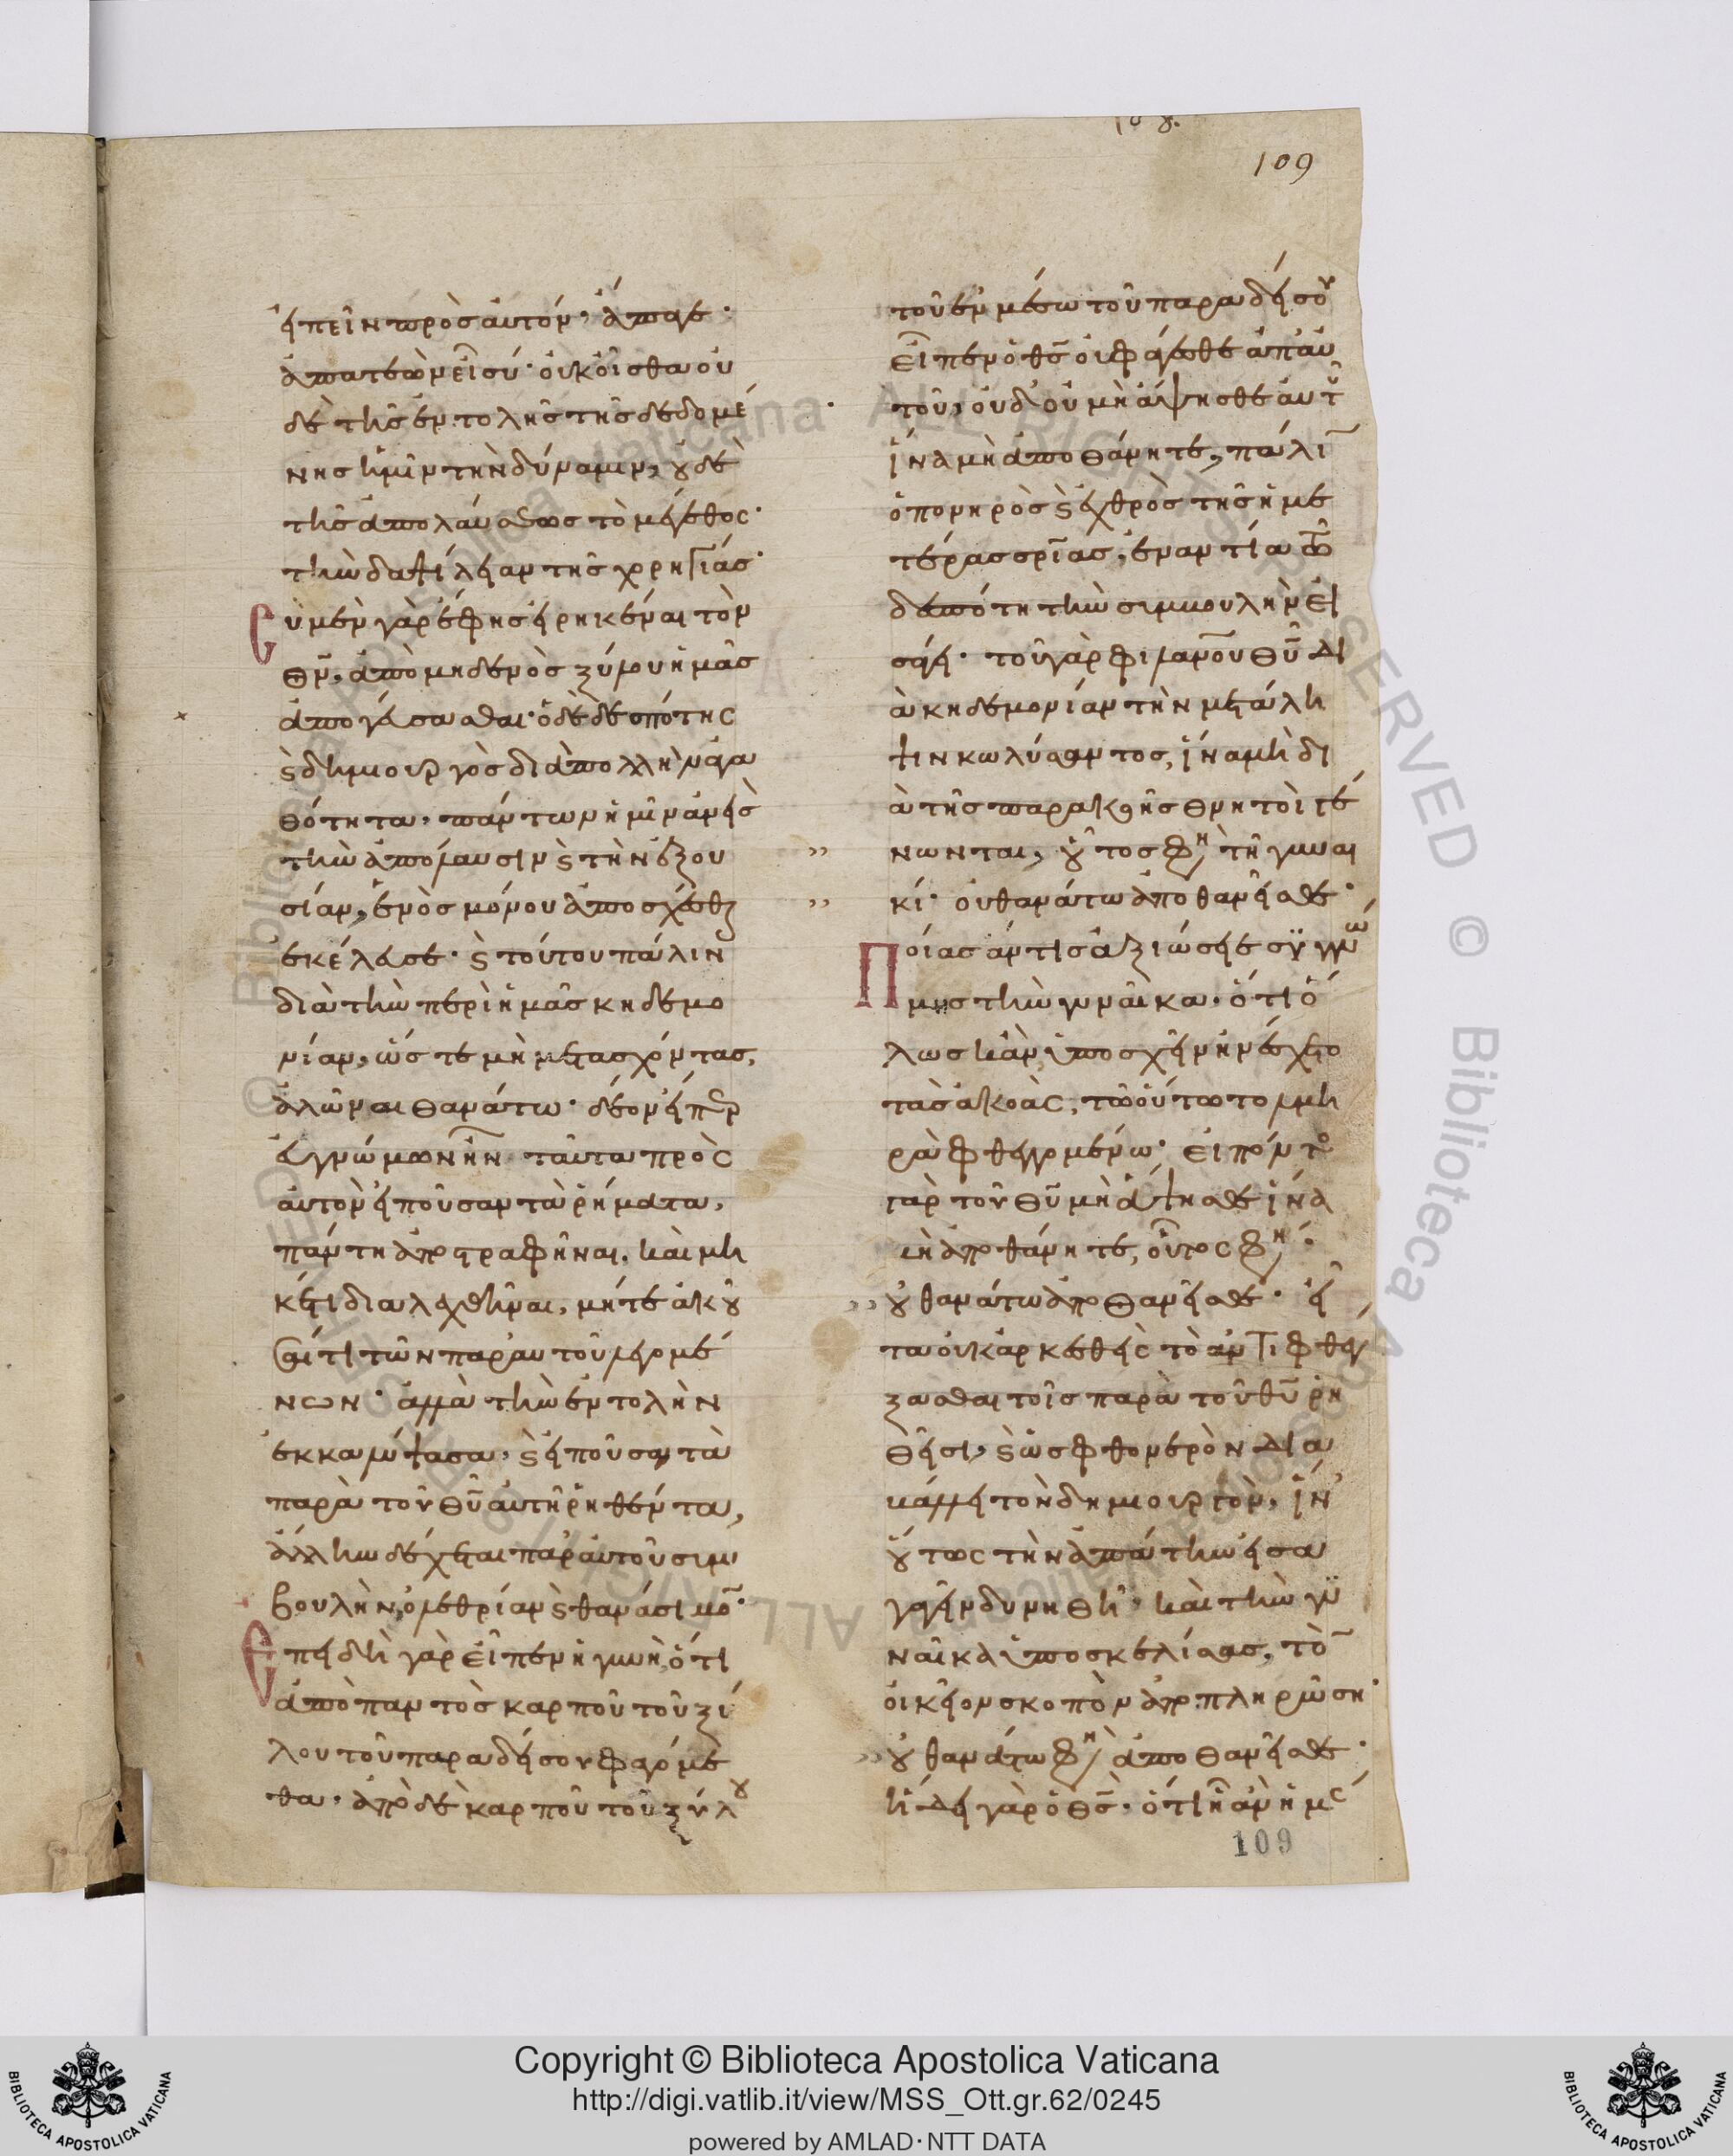 109
εἰπεῖν πρὸς αὐτόν· ἄπαγε·
ἀπατεὼν εἶ σύ· οὐκ οἶσθα οὐ
δὲ τῆς ἐντολῆς τῆς δεδομέ
νης ἡμῖν τὴν δύναμιν, οὐδὲ
τῆς ἀπολαύσεως τὸ μέγεθος·
τὴν δαψίλειαν τῆς χορηγίας·
Σὺ μὲν γὰρ ἔφης εἰρηκέναι τὸν
θν, ἀπὸ μηδενὸς ξύλου ἡμᾶς
ἀπογεύσασθαι· ὁ δὲ δεσπότης
καὶ δημιουργὸς διὰ πολλὴν ἀγα
θότητα, πάντων ἡμῖν ἀνεὶς
τὴν ἀπόλαυσιν καὶ τὴν ἐξου
σίαν, ἑνὸς μόνου ἀποσχέσθαι
ἐκέλευσε· καὶ τούτου πάλιν
διὰ τὴν περὶ ἡμᾶς κηδεμο
νίαν, ὥστε μὴ μετασχόντας,
ἁλῶναι θανάτω· δέον εἴπερ
εὐγνώμων ἦν ταῦτα πρὸς
αὐτὸν εἰποῦσαν τὰ ῥήματα,
πάντη ἀποστραφῆναι, καὶ μη
κέτι διαλεχθῆναι, μήτε ἀκοῦ
σαί τι τῶν παρ' αὐτοῦ λεγομέ
νων· ἀλλὰ τὴν ἐντολὴν
ἐκκαλύψασα, καὶ εἰποῦσα τὰ
παρὰ τοῦ θυ αὐτῆ ῥηθέντα,
ἄλλην δέχεται παρ' αὐτοῦ συμ
βουλὴν, ὀλεθρίαν καὶ θανάσιμον·
Ἐπειδὴ γὰρ εἶπεν ἡ γυνὴ, ὅτι
ἀπὸ παντὸς καρποῦ τοῦ ξύ
λου τοῦ παραδείσου φαγόμε
θα· ἀπὸ δὲ καρποῦ τοῦ ξύλου
τοῦ ἐν μέσω τοῦ παραδείσου
εἶπεν ὁ θς οὐ φάγεσθε ἀπ' αὐ
τοῦ, οὐδ' οὐ μὴ ἅψησθε αὐτοῦ
ἵνα μὴ ἀποθάνητε, πάλιν
ὁ πονηρὸς καὶ ἐχθρὸς τῆς ἡμε
τέρας σρίας, ἐναντίαν τῶ
δεσπότη τὴν συμβουλὴν εἰ
σάγει· τοῦ γὰρ φιλανου θυ δι
ὰ κηδεμονίαν τὴν μετάλη
ψιν κωλύσαντος, ἵνα μὴ δι
ὰ τῆς παρακοῆς θνητοὶ γέ
νωνται, οὗτος φη τῆ γυναι
κί· οὐ θανάτω ἀποθανεῖσθε·
Ποίας ἄν τις ἀξιώσειε συγγνώ
μης τὴν γυναῖκα, ὅτι ὅ
λως κἂν ὑποσχεῖν ἠνέσχετο
τὰς ἀκοὰς, τῶ οὕτω τολμη
ρὰ φθεγγομένω· εἰπόντος
γὰρ τοῦ θυ μὴ ἅψησθε ἵνα
μὴ ἀποθάνητε, οὗτος φη·
οὐ θανάτω ἀποθανεῖσθε· εἶ
τα οὐκ ἀρκεσθεὶς τὸ ἀντιφθέγ
ξασθαι τοῖς παρὰ τοῦ θυ ῥη
θεῖσι, καὶ ὡς φθονερὸν δια
βάλλει τὸν δημιουργὸν, ἵν'
οὕτως τὴν ἀπάτην εἰσα
γαγεῖν δυνηθῆ, καὶ τὴν γυ
ναῖκα ὑποσκελίσας, τὸν
οἰκεῖον σκοπὸν ἀποπληρώση·
οὐ θανάτω φη ἀποθανεῖσθε·
ἤδει γὰρ ὁ θς· ὅτι ἧ ἂν ἡμέ
109
Copyright © Biblioteca Apostolica Vaticana
http://digi.vatlib.it/view/MSS_Ott.gr.62/0245
powered by AMLAD·NTT DATA